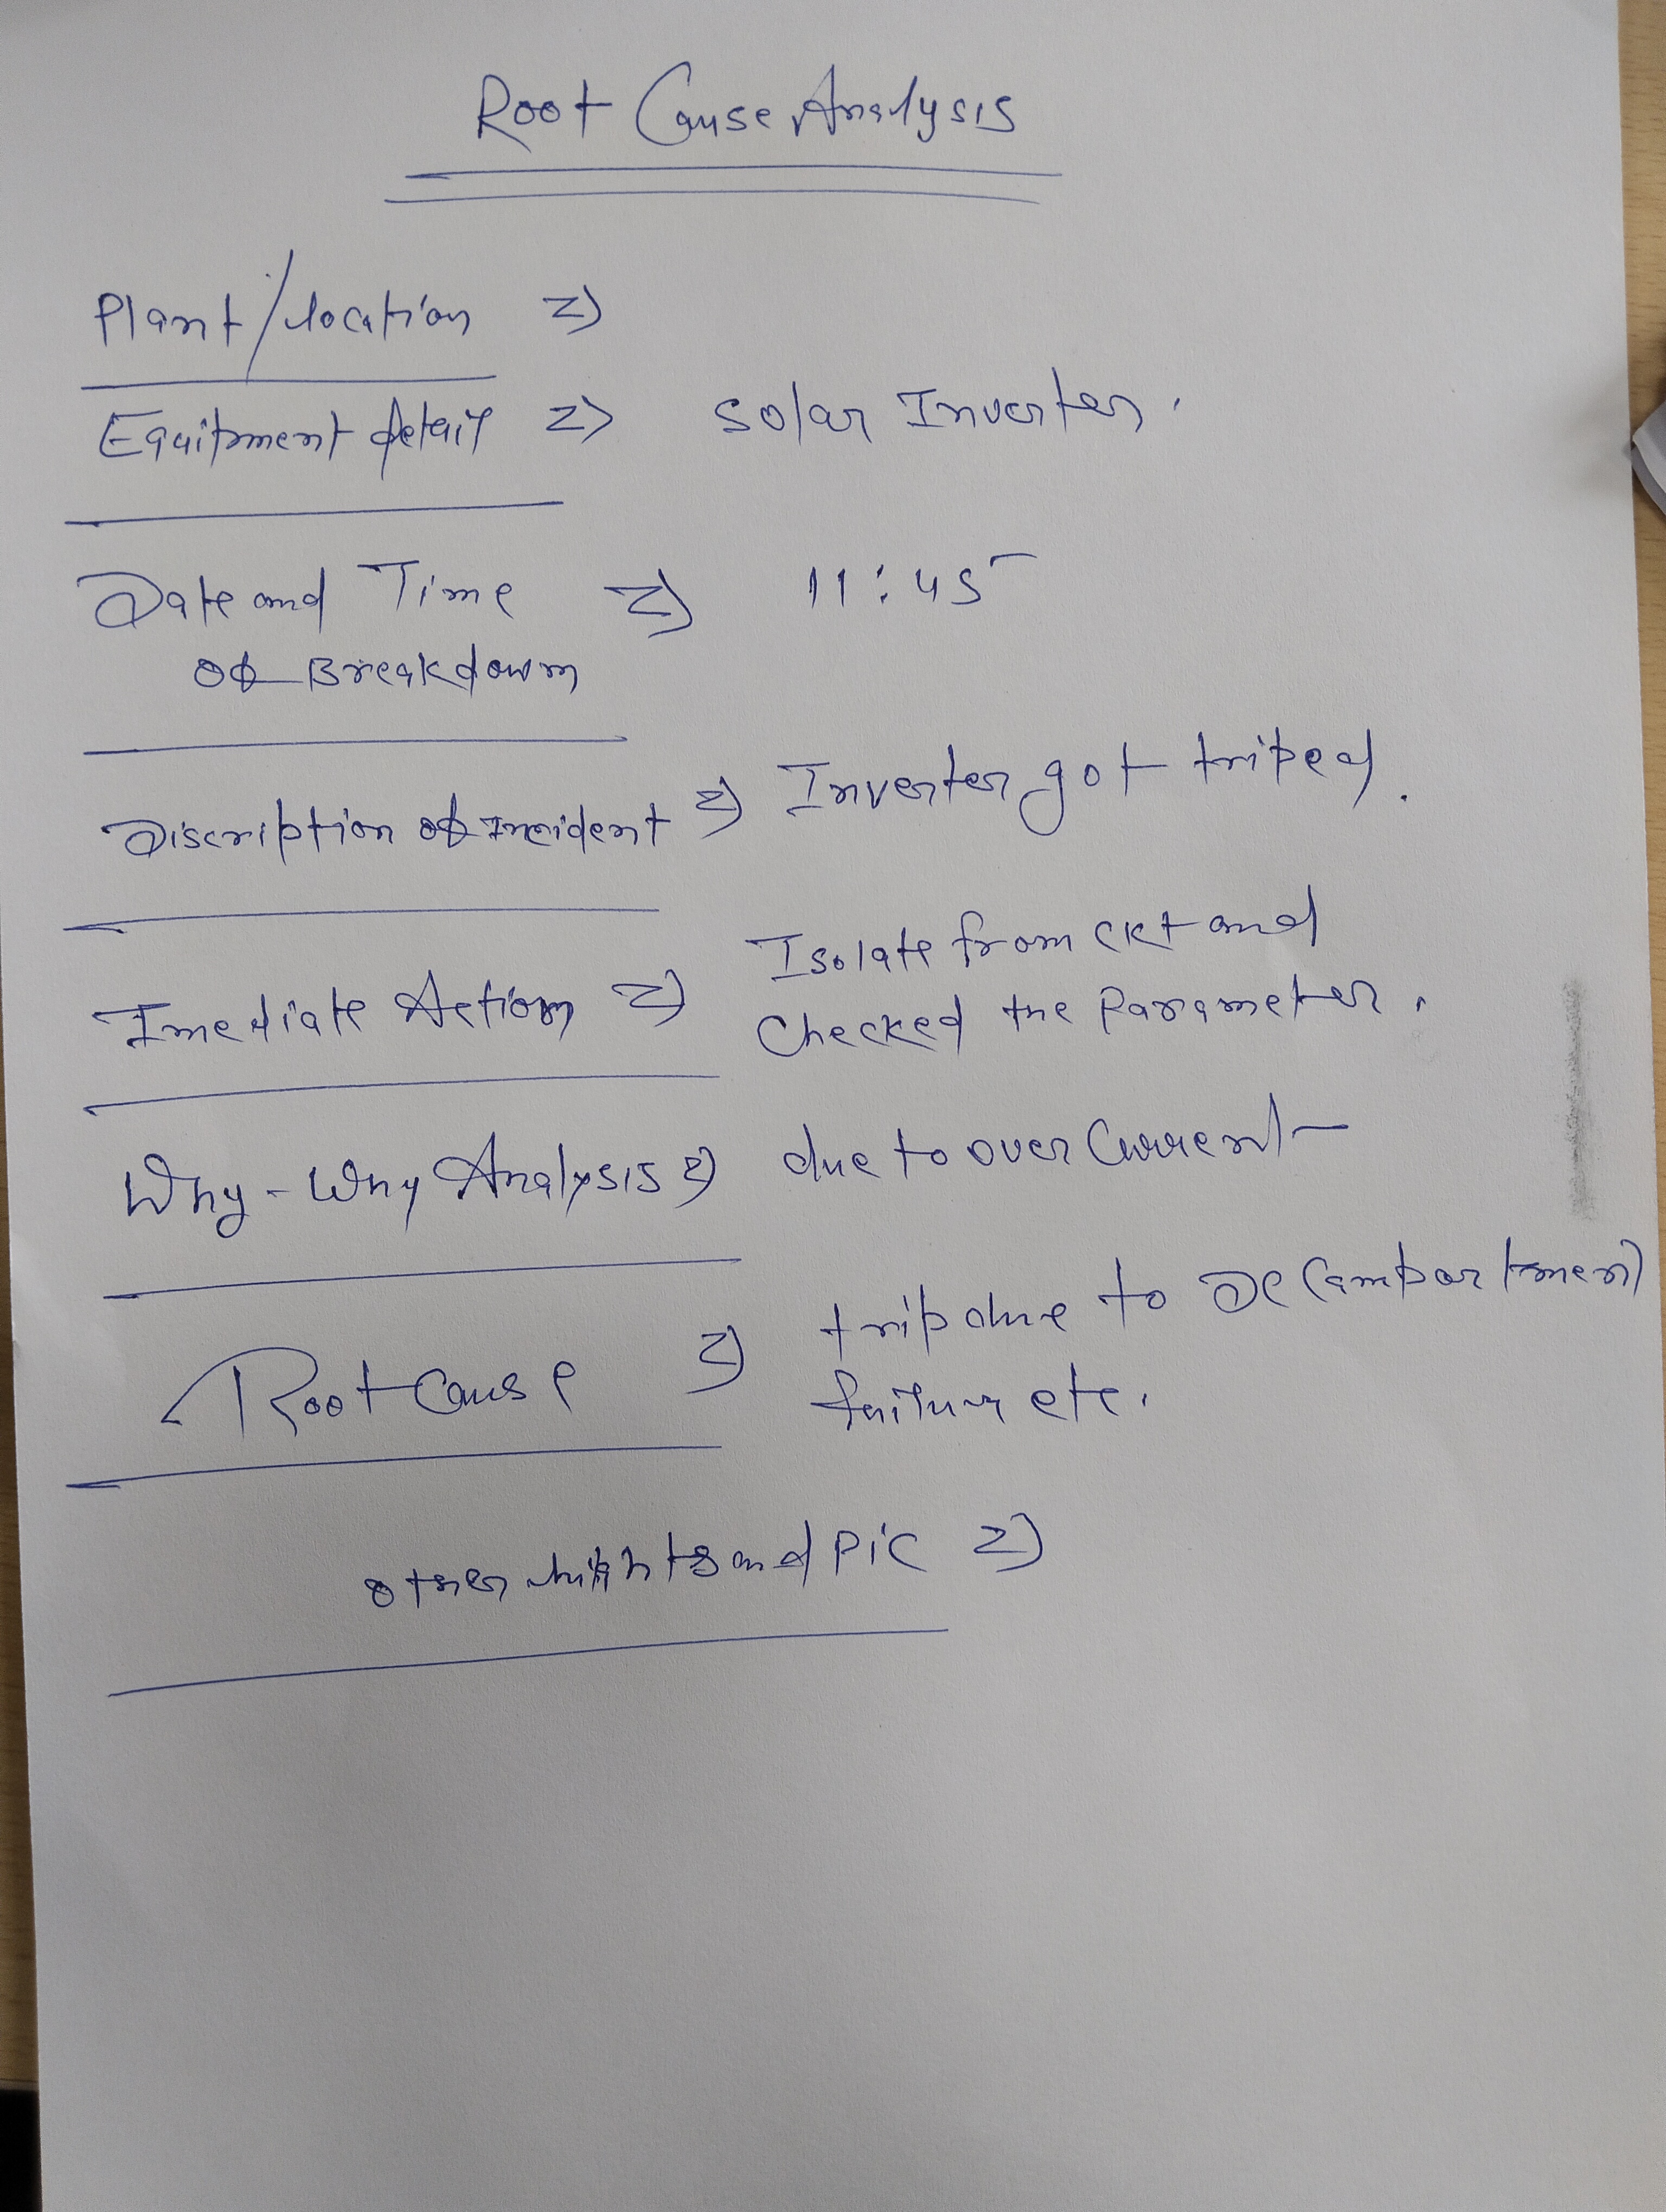 Root Cause Analysis
Plant/location =>
Equitpment detail => Solar Inverter.
Date and Time => 11:45
of Breakdown
Discription of Incident => Inverter got triped.
Imediate Action => Isolate from CKT and
Checked the Parameter.
Why-Why Analysis => due to over Current
Root Cause => trip due to DC Compartment
failure etc.
other and Pic =>